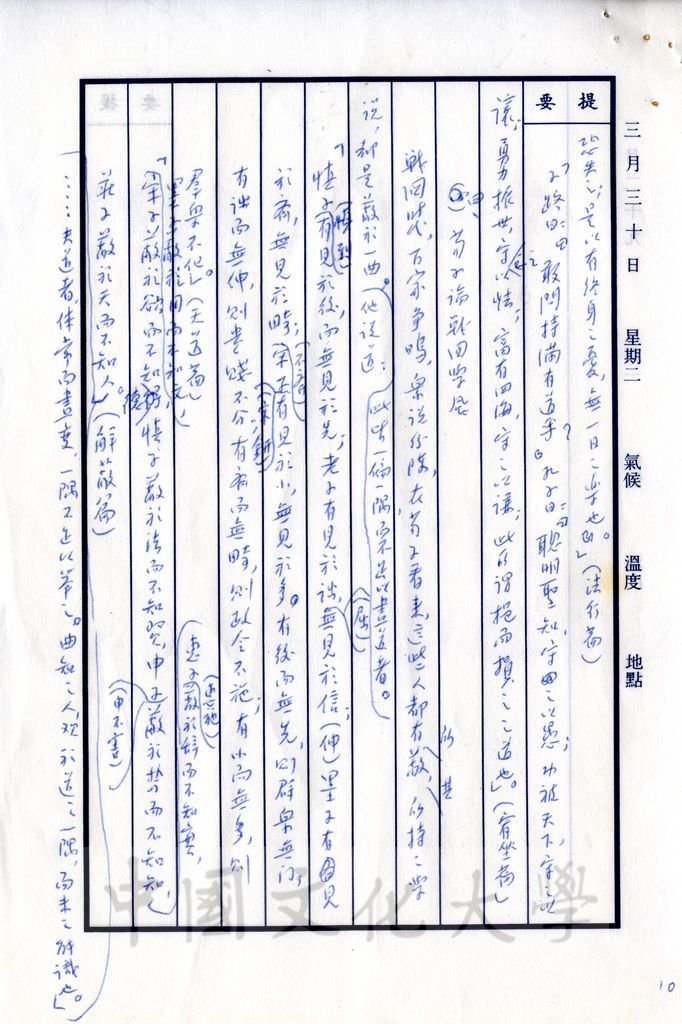 三月三十日 星期二 氣候 溫度 地點
提要
恐失之，是以有終身之憂，無一日之樂也。」（法行篇）
「子路曰：「敢問持滿有道乎？」孔子曰：「聰明聖知，守之以愚；功被天下，守之以
讓；勇振世，守之以怯；富有四海，守之以謙；此所謂挹而損之之道也」。（宥坐篇）
荀子論戰國學風
戰國時代，百家爭鳴，眾說紛陳，在荀子看來，這些人都有所蔽，其所持之學
說，都是蔽於一曲，此皆一偏一隅，而不足以盡道者。他說道：
「慎子（慎到）有見於後，而無見於先；老子有見於詘（屈），無見於信（伸）；墨子有見
於齊，無見於畸（不齊）；宋子（宋鈃）有見於小，無見於多。有後而無先，則群眾無門；
有詘而無伸，則貴賤不分；有齊而無畸，則政令不施；有小而無多，則
羣眾不化」（天道篇）
「墨子蔽於用而不知文，
宋子蔽於欲而不知得，慎子蔽於法而不知賢，申子（申不害）蔽於勢而不知知，
惠子（惠施）蔽於辭而不知實，
莊子蔽於天而不知人。」（解蔽篇）
「……夫道者，體常而盡變，一隅不足以舉之。曲知之人，觀於道之一隅，而未之能識也」。
中國文化大學
10